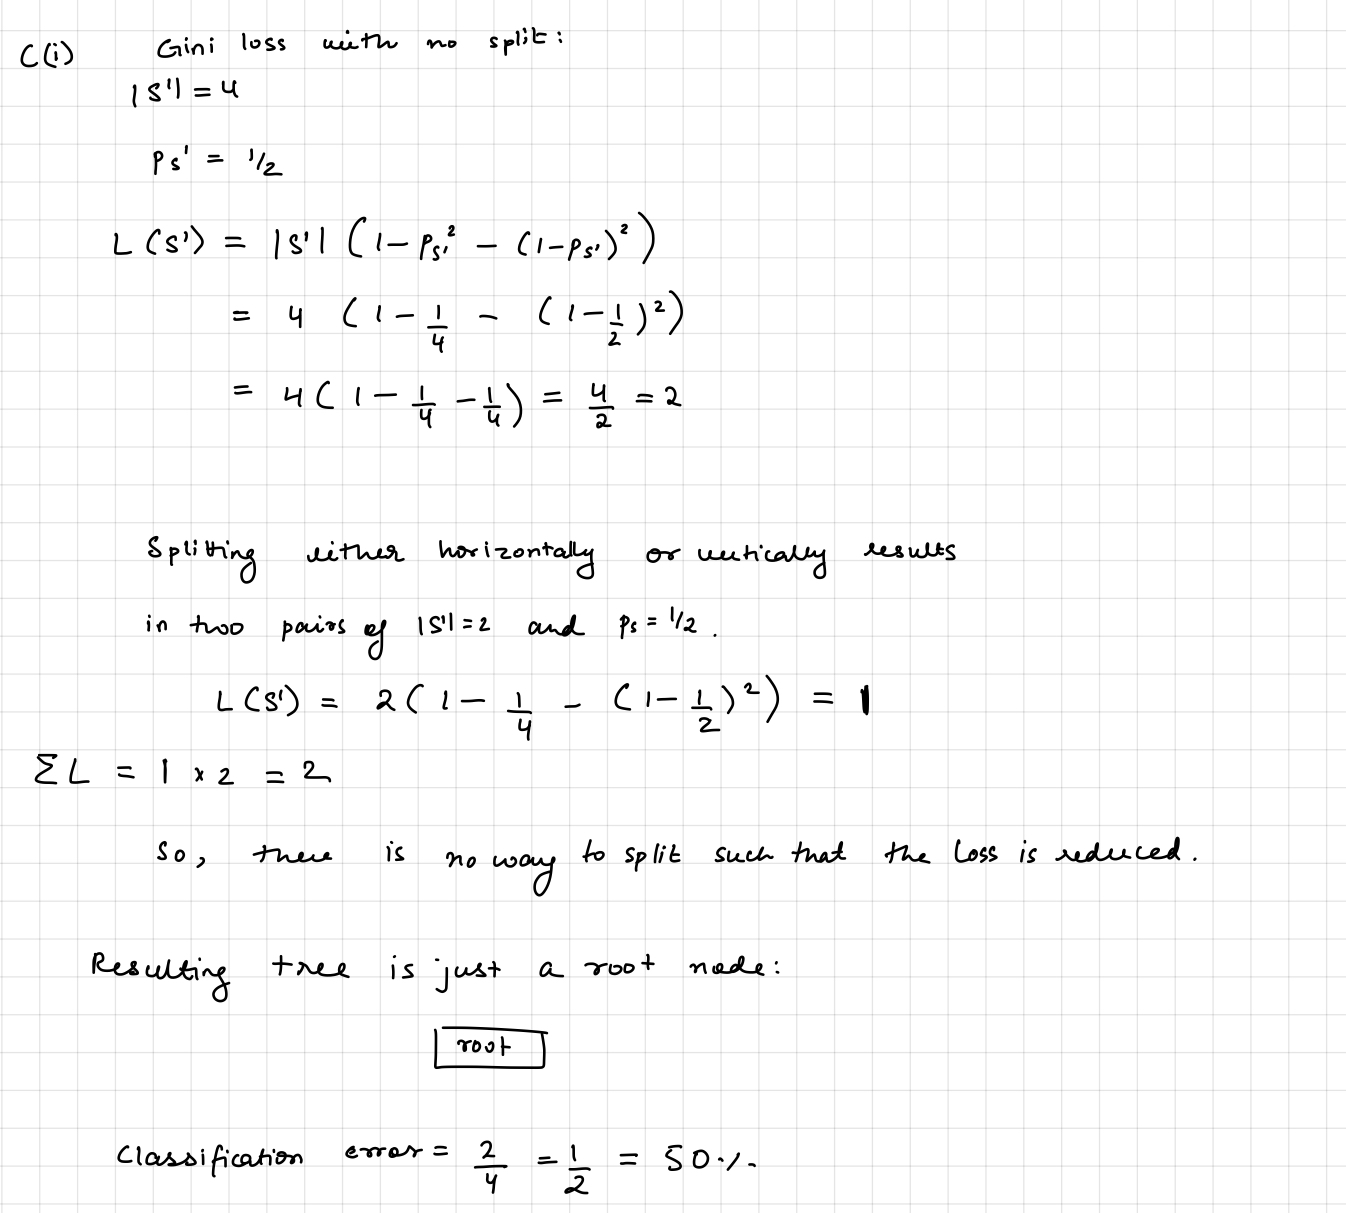 C(i) Gini loss with no split:
|S'| = 4
Ps' = 1/2
L(S') = |S'| (1 - Ps'² - (1-Ps')²)
= 4 (1 - 1/4 - (1 - 1/2)²)
= 4(1 - 1/4 - 1/4) = 4/2 = 2
Splitting either horizontally or vertically results
in two pairs of |S'| = 2 and Ps = 1/2.
L(S') = 2(1 - 1/4 - (1 - 1/2)²) = 1
ΣL = 1 × 2 = 2
So, there is no way to split such that the loss is reduced.
Resulting tree is just a root node:
root
Classification error = 2/4 = 1/2 = 50%.